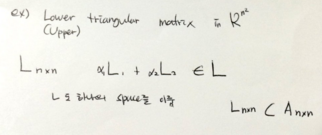 ex) Lower triangular matrix in R^{n²}
(Upper)
L_{n×n} α₁L₁ + α₂L₂ ∈ L
L도 하나의 space를 이룸
L_{n×n} ⊂ A_{n×n}